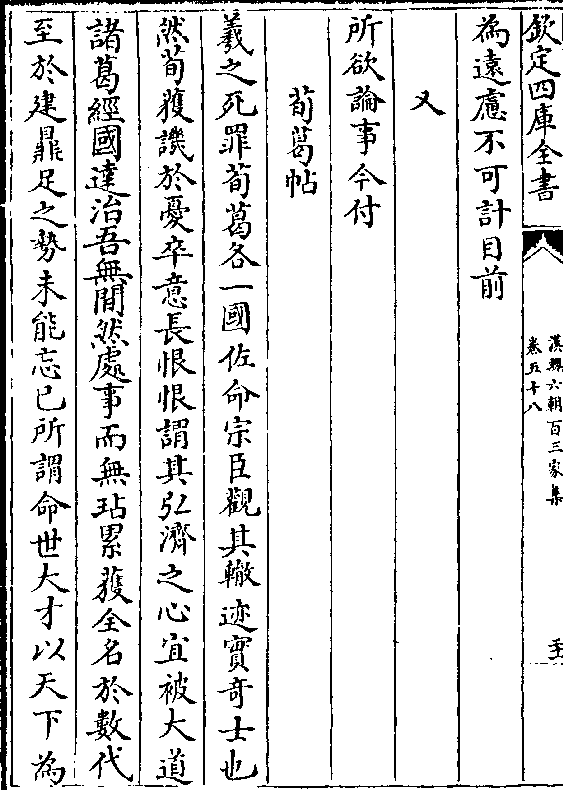 欽定四庫全書
漢魏六朝百三家集
卷五十八
為遠慮不可計目前
又
所欲論事今付
荀葛帖
羲之死罪荀葛各一國佐命宗臣觀其轍迹實奇士也
然荀獲譏於憂卒意長恨恨謂其弘濟之心宜被大道
諸葛經國達治吾無間然處事而無玷累獲全名於數代
至於建鼎足之勢未能忘已所謂命世大才以天下為